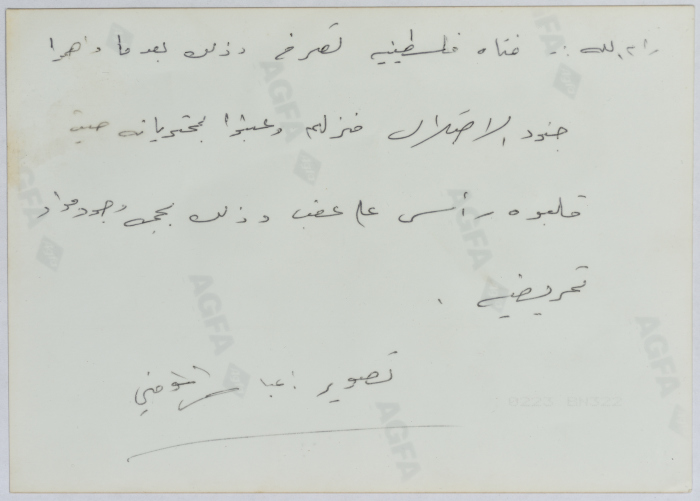 رام الله :- فتاه فلسطينيه تصرخ وذلك بعد ما داهموا
جنود الاحتلال منزلهم وعبثوا بمحتوياته حيث
قلبوه رأس على عقب وذلك بحجة وجود مواد
تحريضيه .
تصوير : عباس المومني
AGFA
AGFA
AGFA
AGFA
AGFA
AGFA
AGFA